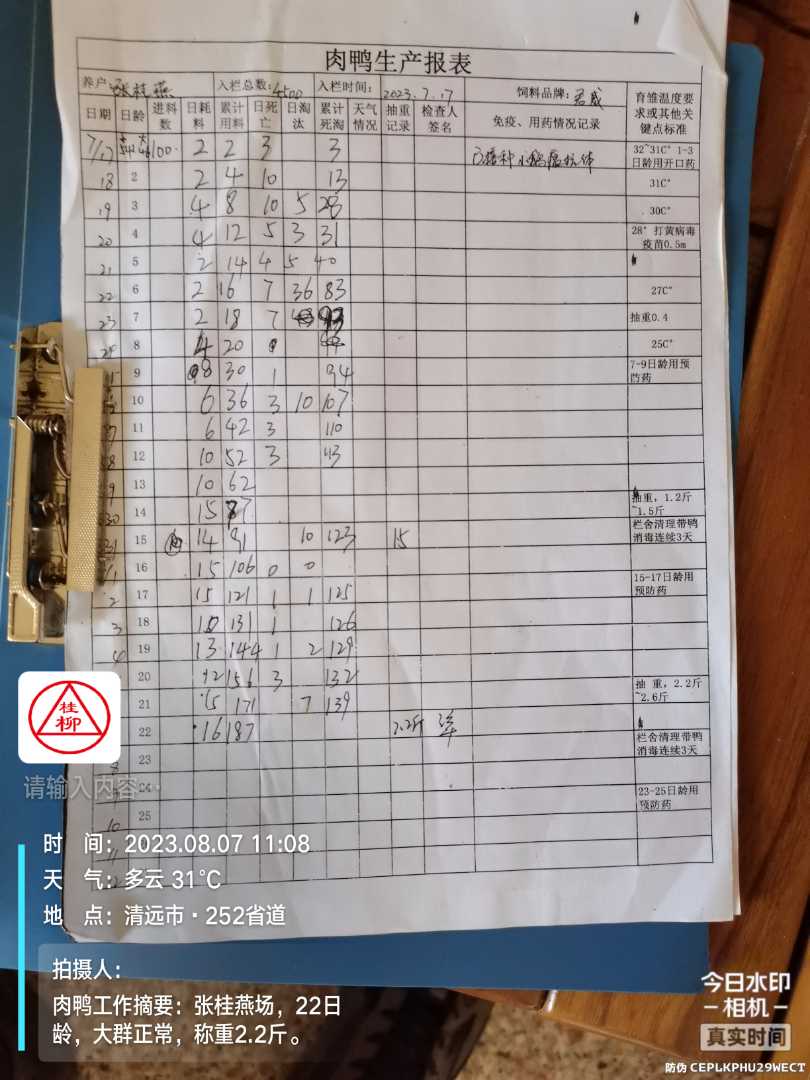 肉鸭生产报表
养户: 张桂燕 入栏总数: 4500 入栏时间: 2023.7.17 饲料品牌:
育雏温度要求或其他关键点标准
日期 日龄 进料数 日耗料 累计用料 日死亡 日淘汰 累计死淘 天气情况 抽重记录 检查人签名 免疫、用药情况记录
7/17 100 2 2 3 3 32~31C° 1-3日龄用开口药
18 2 2 4 10 13 31C°
19 3 4 8 10 5 28 30C°
20 4 4 12 5 3 31 28° 打黄病毒疫苗0.5m
21 5 2 14 4 5 40
22 6 2 16 7 36 83 27C°
23 7 2 18 7 抽重0.4
8 4 20 25C°
9 8 30 1 94 7-9日龄用预防药
10 6 36 3 10 107
11 6 42 3 110
12 10 52 3
13 10 62
30 14 15 抽重，1.2斤~1.5斤
31 15 14 91 10 123 15 栏舍清理带鸭消毒连续3天
1 16 15 106 0 0
2 17 15 121 1 1 125 15-17日龄用预防药
3 18 10 131 1 126
4 19 13 144 1 2 129
20 12 156 3 132 抽 重，2.2斤~2.6斤
21 15 171 7 139
22 16 187 2.2斤 栏舍清理带鸭消毒连续3天
23
24 23-25日龄用预防药
25
10
11
桂柳
请输入内容...
时 间: 2023.08.07 11:08
天 气: 多云 31℃
地 点: 清远市·252省道
拍摄人:
肉鸭工作摘要: 张桂燕场，22日
龄，大群正常，称重2.2斤。
今日水印
相机
真实时间
防伪 CEPLKPHU29WECT